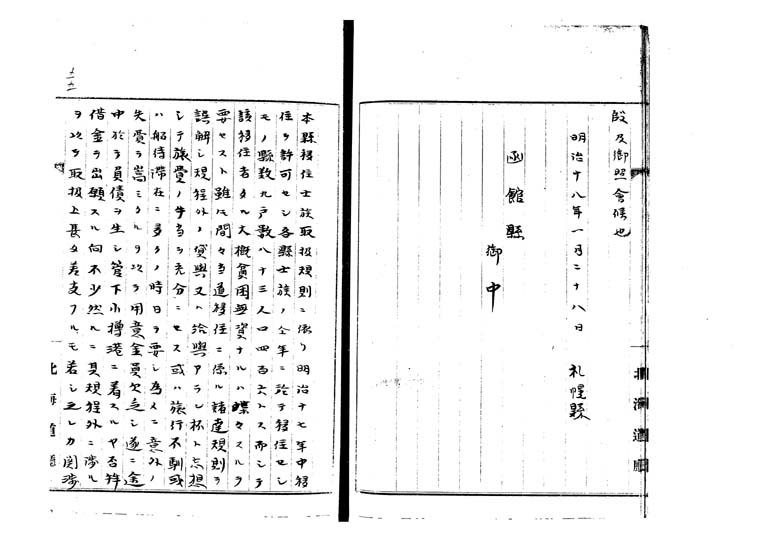 殷及御照會候也
明治十八年一月二十八日 札幌縣
函館縣
御中
本縣移住士族取扱規則ニ依リ明治十七年中移
住ヲ許可セシ各縣士族ノ全年ニ於テ移住セシ
モノ縣数九戸数八十三人口四百六トス而シテ
該移住者タル大概貧困無資ナルハ喋々スルヲ
要セスト雖モ間々当道移住ニ係ル諸達規則ヲ
誤解シ規程外ノ貸與又ハ給與アラン杯ト忘想
シテ旅費ノ手当ヲ充分ニセス或ハ旅行不馴或
ハ船待滞在ニ多クノ時日ヲ要シ為メニ意外ノ
失費ヲ嵩ミタルヲ以テ用意金員欠乏シ遂ニ途
中於テ負債ヲ生シ管下小樽港ニ着スルヤ否拝
借金ヲ出願スル向不少然ルニ其規程外ニ渉ル
ヲ以テ取扱上甚タ差支フルモ若シ之レカ関渉
北海道廳